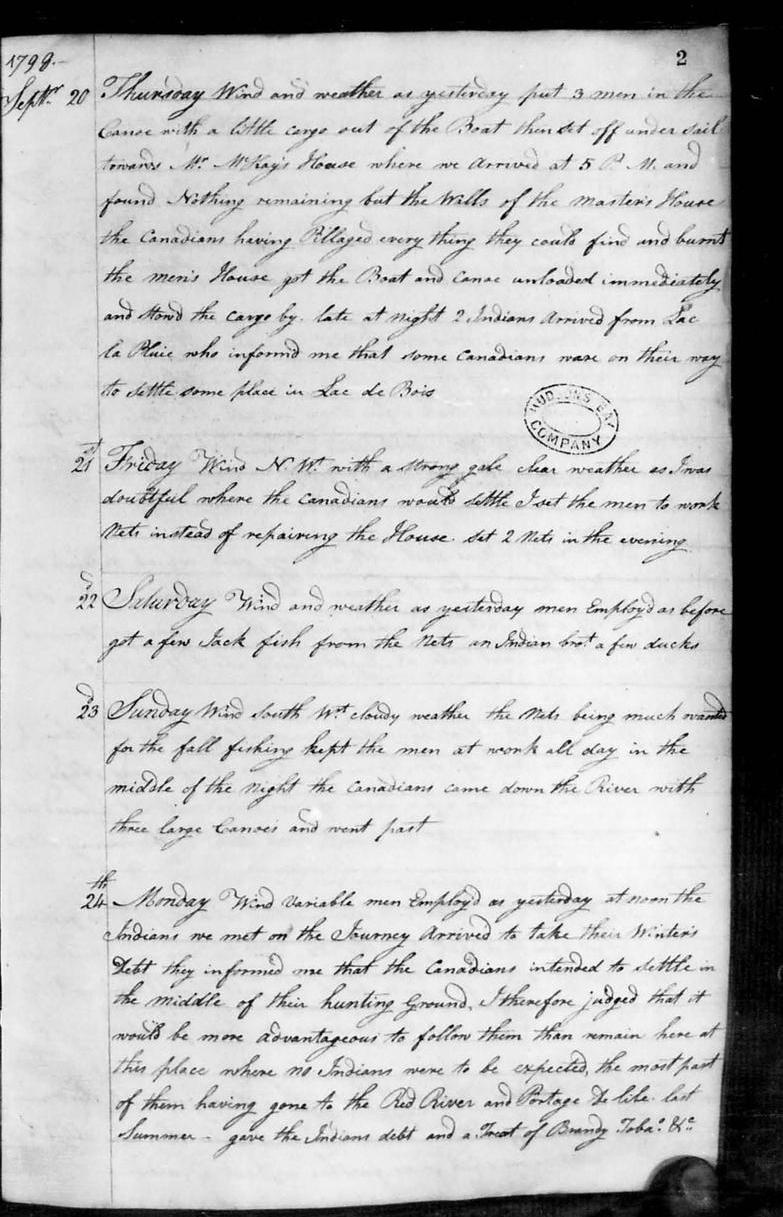 2
1798.
Septr. 20 Thursday Wind and weather as yesterday put 3 men in the
Canoe with a little cargo out of the Boat then set off under sail
towards Mr. McKay's House where we Arrived at 5 P. M. and
found Nothing remaining but the Walls of the Master's House
the Canadians having Pillaged every thing they could find and burnt
the men's House got the Boat and Canoe unloaded immediately
and Stow'd the cargo by. late at night 2 Indians Arrived from Lac
la Pluie who inform'd me that some Canadians ware on their way
to settle some place in Lac de Bois
HUDSONS BAY
COMPANY
21st Friday Wind N. Wt. with a strong gale clear weather as I was
doubtful where the Canadians would settle I set the men to work
Nets instead of repairing the House. set 2 Nets in the evening
22d Saturday Wind and weather as yesterday men Employd as before
got a few Jack fish from the Nets an Indian brot. a few ducks
23d Sunday Wind South Wt. cloudy weather the Nets being much wanted
for the fall fishing kept the men at work all day in the
middle of the Night the Canadians came down the River with
three large Canoes and went past
24th Monday Wind Variable men Employ'd as yesterday at noon the
Indians we met on the Journey Arrived to take their Winter's
Debt they informed me that the Canadians intended to settle in
the middle of their hunting Ground, I therefore judged that it
would be more advantageous to follow them than remain here at
this place where no Indians were to be expected, the most part
of them having gone to the Red River and Portage De lile last
Summer - gave the Indians debt and a Treat of Brandy Toba.o &c.